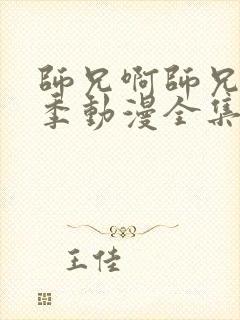 師兄啊師兄
季動漫全集
王佳